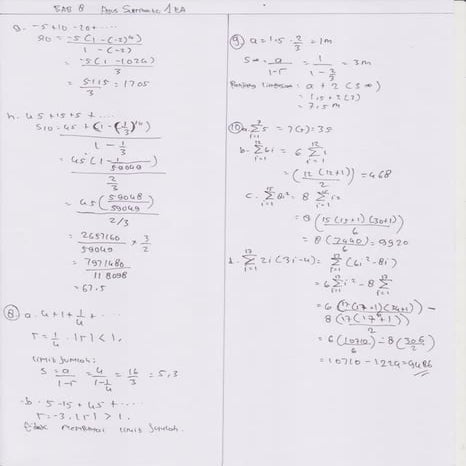 BAB 8
g. -5+10-20+....
S10 = -5(1-(-2)^10) / 1-(-2)
= -5(1-1024) / 3
= 5115 / 3 = 1705
h. 45+15+5+....
S10 = 45+(1-(1/3)^10) / 1-1/3
= 45(1-1/59049) / 2/3
= 45(59048/59049) / 2/3
= 2657160/59049 × 3/2
= 7971480/118098
= 67.5
8) a. 4+1+1/4+....
r=1/4. |r|<1.
limit jumlah:
S = a/1-r = 4/1-1/4 = 16/3 = 5,3
-b. 5-15+45+....
r=-3. |r|>1.
limit jumlah.
9) a=1.5. 2/3 = 1m
S∞ = a/1-r = 1/1-2/3 = 3m
Panjang lintasan: a+2(S∞)
= 1,5+2(3)
= 7,5m
10) a. Σ5 = 7(5)=35
b. Σ6i = 6 Σi
= (12(12+1)/2) = 468
c. Σ8i² = 8 Σi²
= 8(15(15+1)(30+1)/6)
= 8(7440/6) = 9920
Σ2i(3i-4) = Σ(6i²-8i)
= 6Σi²-8Σi
= 6(17(17+1)(34+1)/6) -
8(17(17+1)/2)
= 6(10710/6)-8(306/2)
= 10710-1224=9486